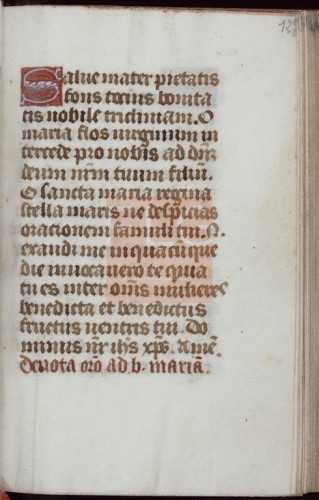 128
Salue mater pietatis
fons tocius bonita
tis nobile tricliniam. O
maria flos uirginum in
tercede pro nobis ad dñm
deum nr̃m tuum filiũ.
O sancta maria regina
stella maris ne despicias
orationem famuli tui. N.
exaudi me in quacũque
die inuocauero te quia
tu es inter om̃s mulieres
benedicta et benedictus
fructus uentris tui. Do
minus nr̃ ihs̃ xp̃s. Amẽ.
Deuota orõ ad b. mariã.